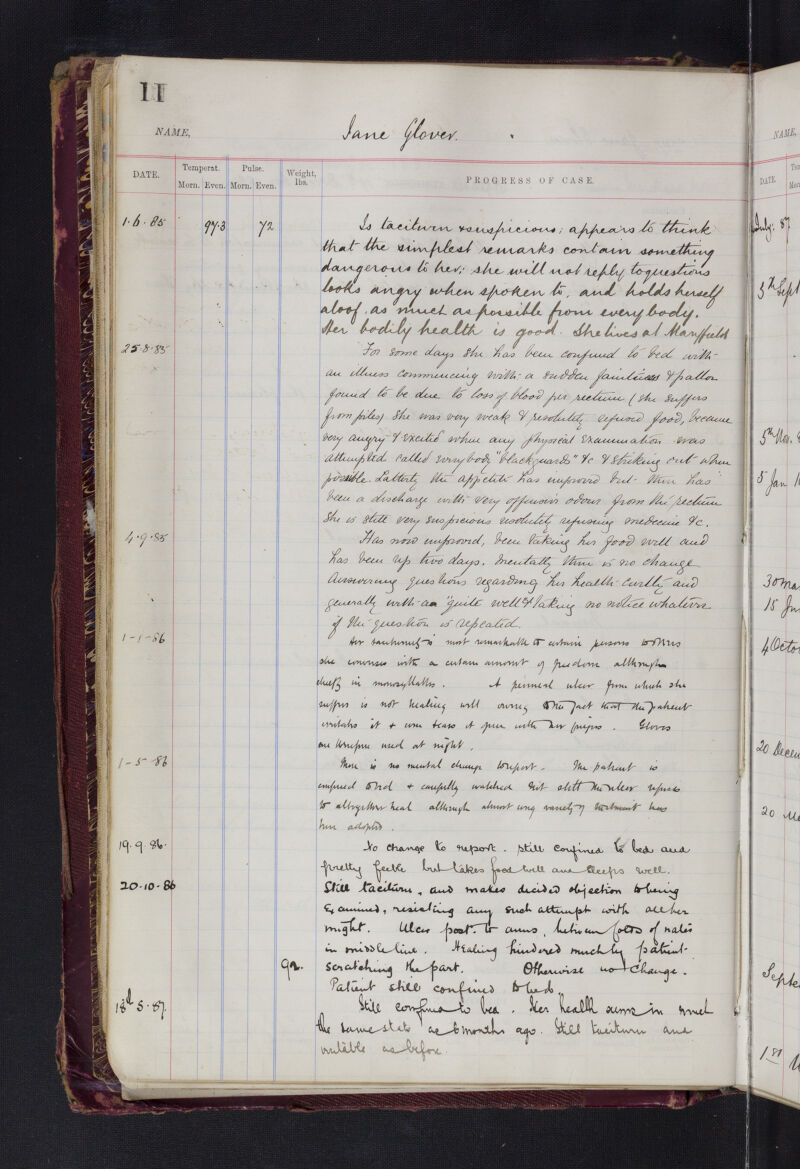 11
NAME, Jane Glover.
DATE. Temperat. Pulse. Weight, lbs. PROGRESS OF CASE.
Morn. Even. Morn. Even.
1·6·85 97·3 72 Is taciturn & suspicious; appears to think
that the simplest remarks contain something
dangerous to her; she will not reply to questions
looks angry when spoken to, and holds herself
aloof, as much as possible from everybody.
Her bodily health is good. She lives at Maryfield
25·8·85 For some days she has been confined to bed with
an illness commencing with a sudden faintness & pallor
found to be due to loss of blood per rectum (she suffers
from piles) she was very weak & resolutely refused food, became
very angry & excited when any physical examination was
attempted called everybody "blackguards" &c & striking out when
possible. Latterly the appetite has improved but there has
been a discharge with very offensive odour from the rectum
She is still very suspicious resolutely refusing medicine &c.
4·9·85 Has now improved, been taking her food well and
has been up two days. Mentally there is no change
Answering questions regarding her health curtly and
generally with a "quite well" & taking no notice whatever
if the question is repeated.
1-1-86 Her taciturnity is most remarkable to certain persons to others
she converses with a certain amount of freedom although
chiefly in monosyllables. A perineal ulcer from which she
suffers is not healing well owing to the fact that the patient
irritates it & even tears it open with her fingers. Gloves
are therefore used at night.
1-5-86 There is no mental change to report. The patient is
confined to bed & carefully watched but still the ulcer refuses
to altogether heal although almost every variety of treatment has
been adopted.
19.9.86. No change to report. Still confined to bed and
pretty feeble but takes food well and sleeps well.
20·10·86 Still taciturn, and makes decided objection to being
examined, resisting any such attempt with all her
might. Ulcer post. to anus, between folds of nates
in middle line. Healing hindered much by patient
92. scratching the part. Otherwise no change.
Patient still confined to bed.
18th 5·87. Still confined to bed. Her health seems in much
the same state as 6 months ago. Still taciturn and
irritable as before.
NAME,
DATE.
July. 87
5th Sept
5th Nov.
5 Jan
15
4 Octo
20 Decem
20
Septe
1st